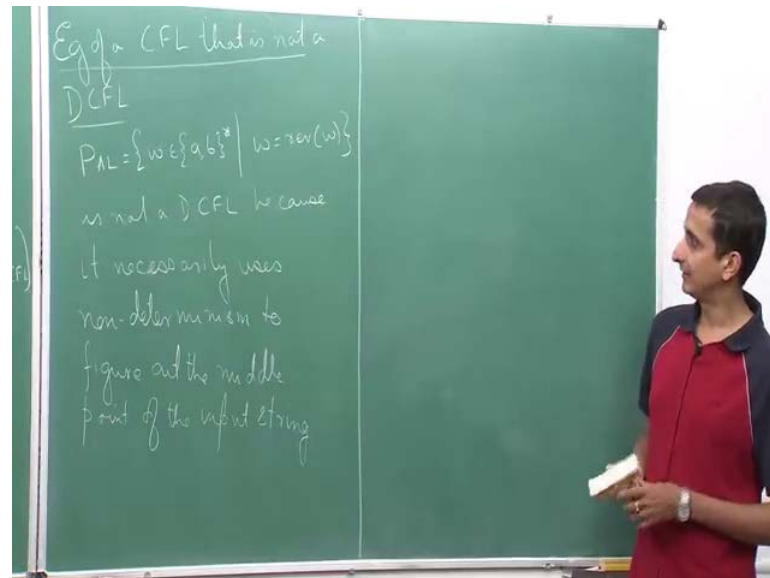 Eg of a CFL that is not a
DCFL
PAL = {w ∈ {a,b}* | w = rev(w)}
is not a DCFL because
it necessarily uses
non-determinism to
figure out the middle
point of the input string